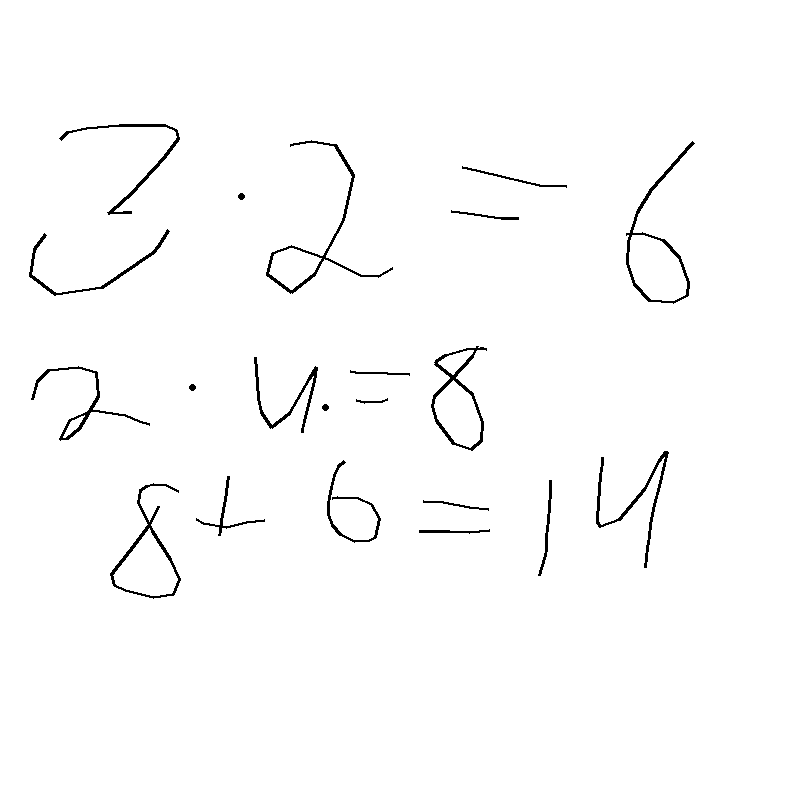 3 · 2 = 6
2 · 4. = 8
8 + 6 = 14